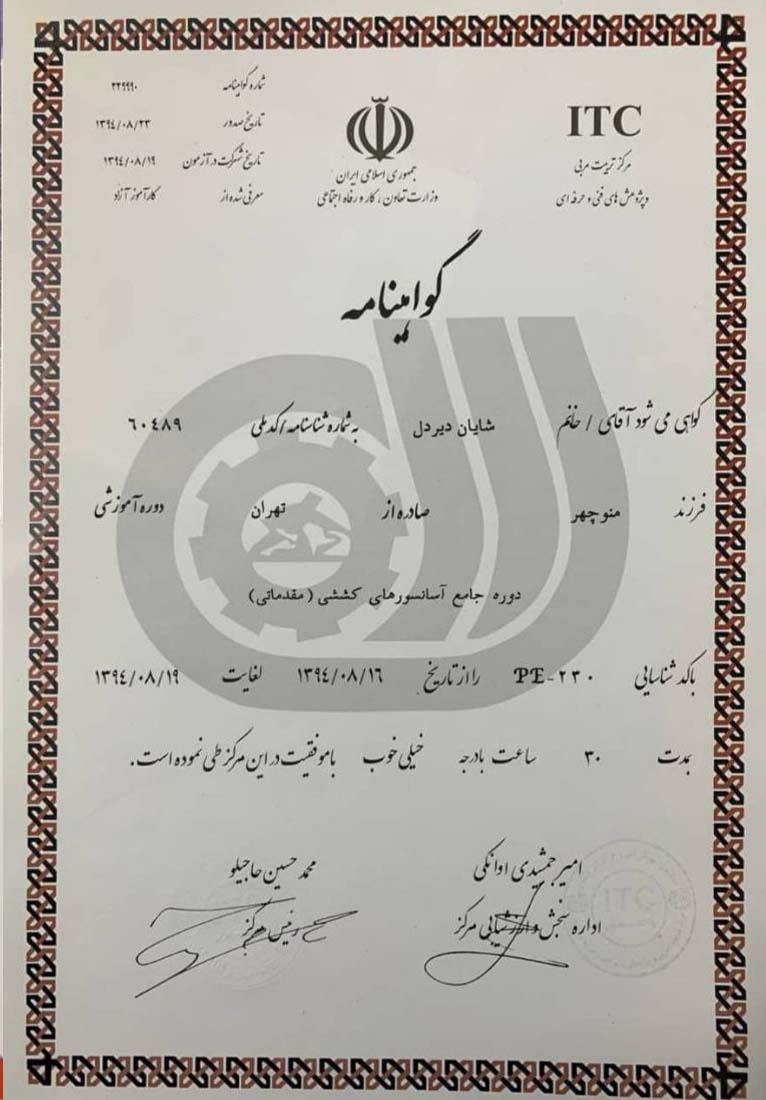 ITC
مرکز تربیت مربی
و پژوهش های فنی و حرفه ای
جمهوری اسلامی ایران
وزارت تعاون ، کار و رفاه اجتماعی
شماره گواهینامه ۲۲۹۹۹۰
تاریخ صدور ۱۳۹٤/۰۸/۲۳
تاریخ شرکت در آزمون ۱۳۹٤/۰۸/۱۹
معرفی شده از کارآموز آزاد
گواهینامه
گواهی می شود آقای / خانم شایان دیردل به شماره شناسنامه / کد ملی ٦۰٤۸۹
فرزند منوچهر صادره از تهران دوره آموزشی
دوره جامع آسانسورهای کششی ( مقدماتی )
با کد شناسایی PE-۲۳۰ را از تاریخ ۱۳۹٤/۰۸/۱٦ لغایت ۱۳۹٤/۰۸/۱۹
بمدت ۳۰ ساعت با درجه خیلی خوب با موفقیت در این مرکز طی نموده است .
امیر جمشیدی اوانکی
اداره سنجش و ارزشیابی مرکز
محمد حسین حاجیلو
رئیس مرکز
ITC